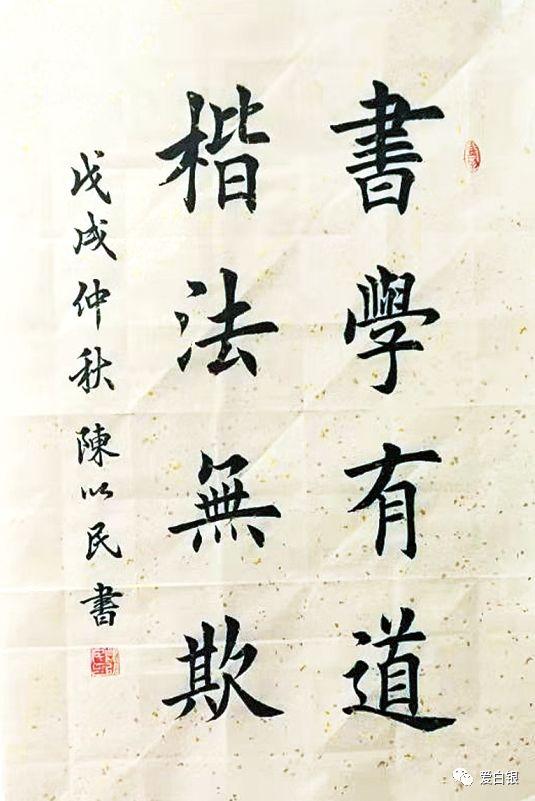 書學有道
楷法無欺
戊戌仲秋陳以民書
爱白银